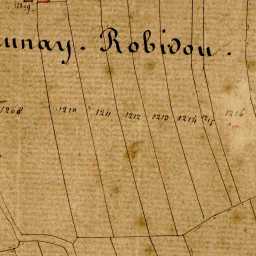 unay. Robidou.
1208 1210 1211 1212 1213 1214 1215 1216